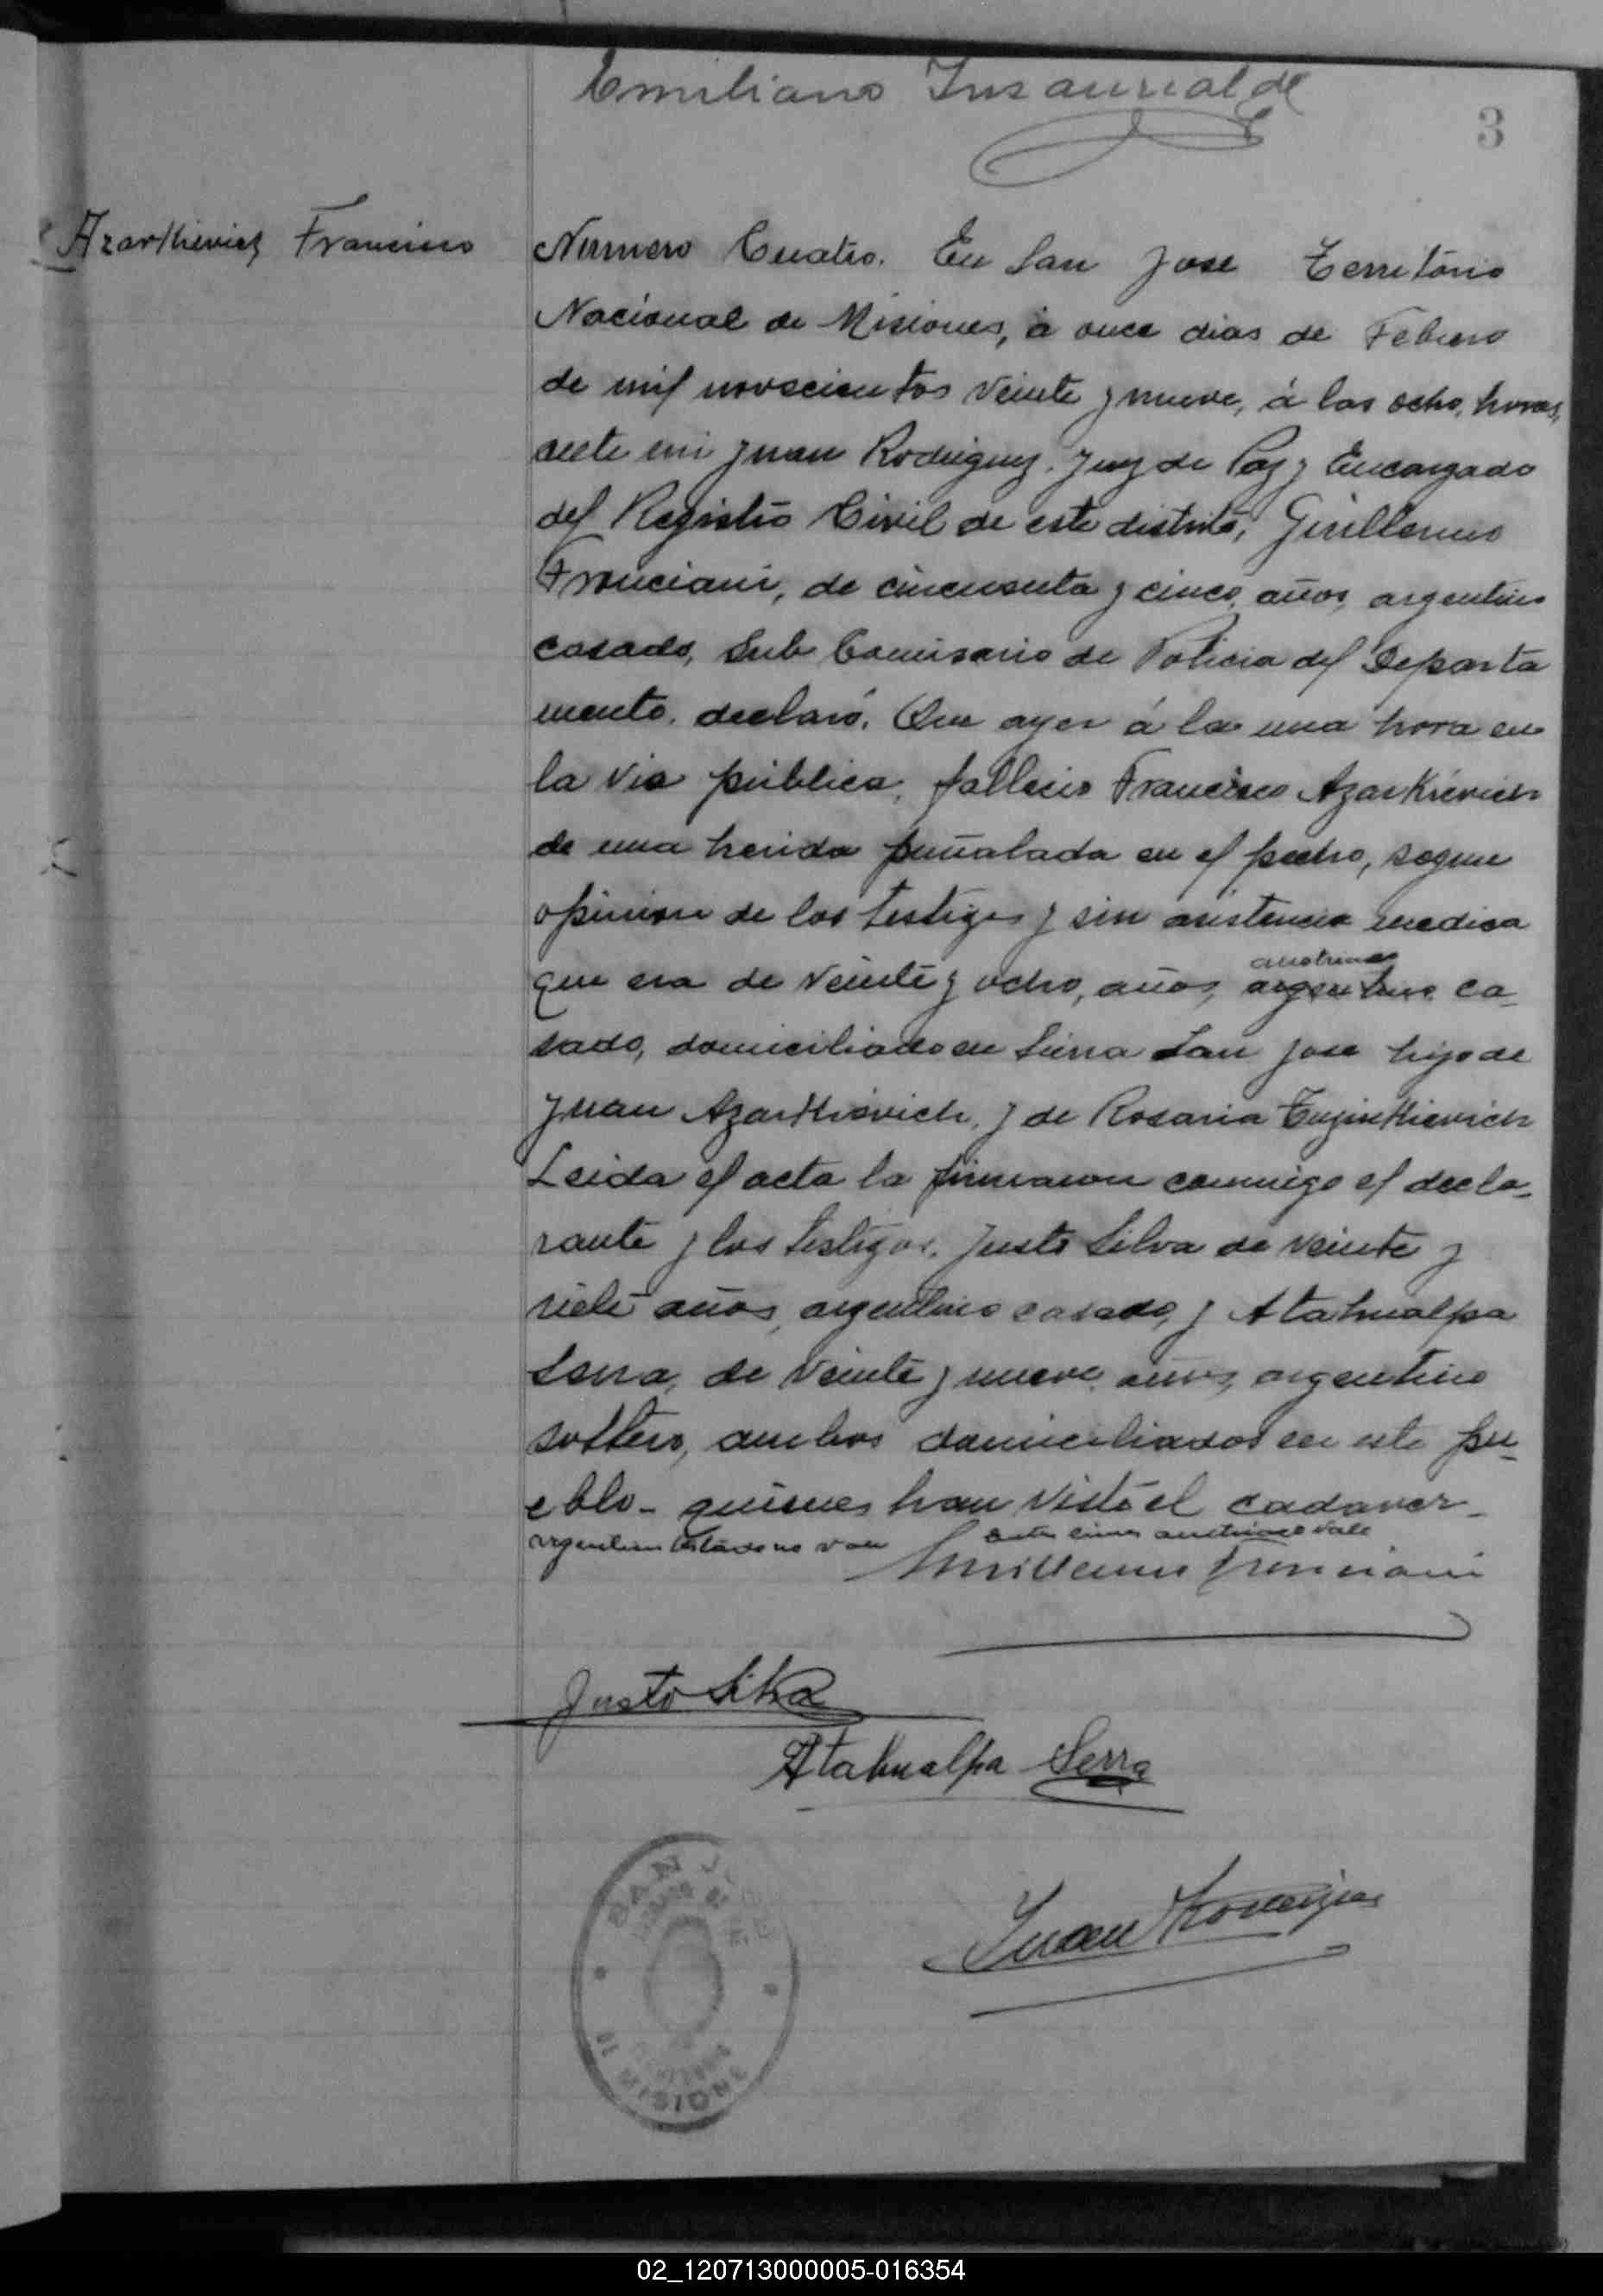 Emiliano Insaurralde
3
Azarkievich Francisco
Numero Cuatro. En San Jose Territorio
Nacional de Misiones, á once dias de Febrero
de mil novecientos veinte y nueve, á las ocho, horas,
ante mi Juan Rodriguez. Juez de Paz y Encargado
del Registro Civil de este distrito, Guillermo
Franciani, de cincuenta y cinco, años, argentino
casado, Sub Comisario de Policia del Departa
mento, declaró. Que ayer á la una hora en
la via pública, fallecio Francisco Azarkievich
de una herida puñalada en el pecho, segun
opinion de los testigos y sin asistencia medica
austriaco
que era de veinte y ocho, años, argentino ca-
sado, domiciliado en Sierra San Jose hijo de
Juan Azarkievich, y de Rosaria
Leida el acta la firmaron conmigo el decla-
rante y los testigos. Justo Silva de veinte y
siete años, argentino casado, y Atahualpa
Serra, de veinte y nueve, años, argentino
soltero, ambos domiciliados en este pu-
eblo - quienes han visto el cadaver -
argentino testado no vale entre lineas austriaco vale
Guillermo Franciani
Justo Silva
Atahualpa Serra
Juan Rodriguez
SAN J
DE MISIONE
02_120713000005-016354